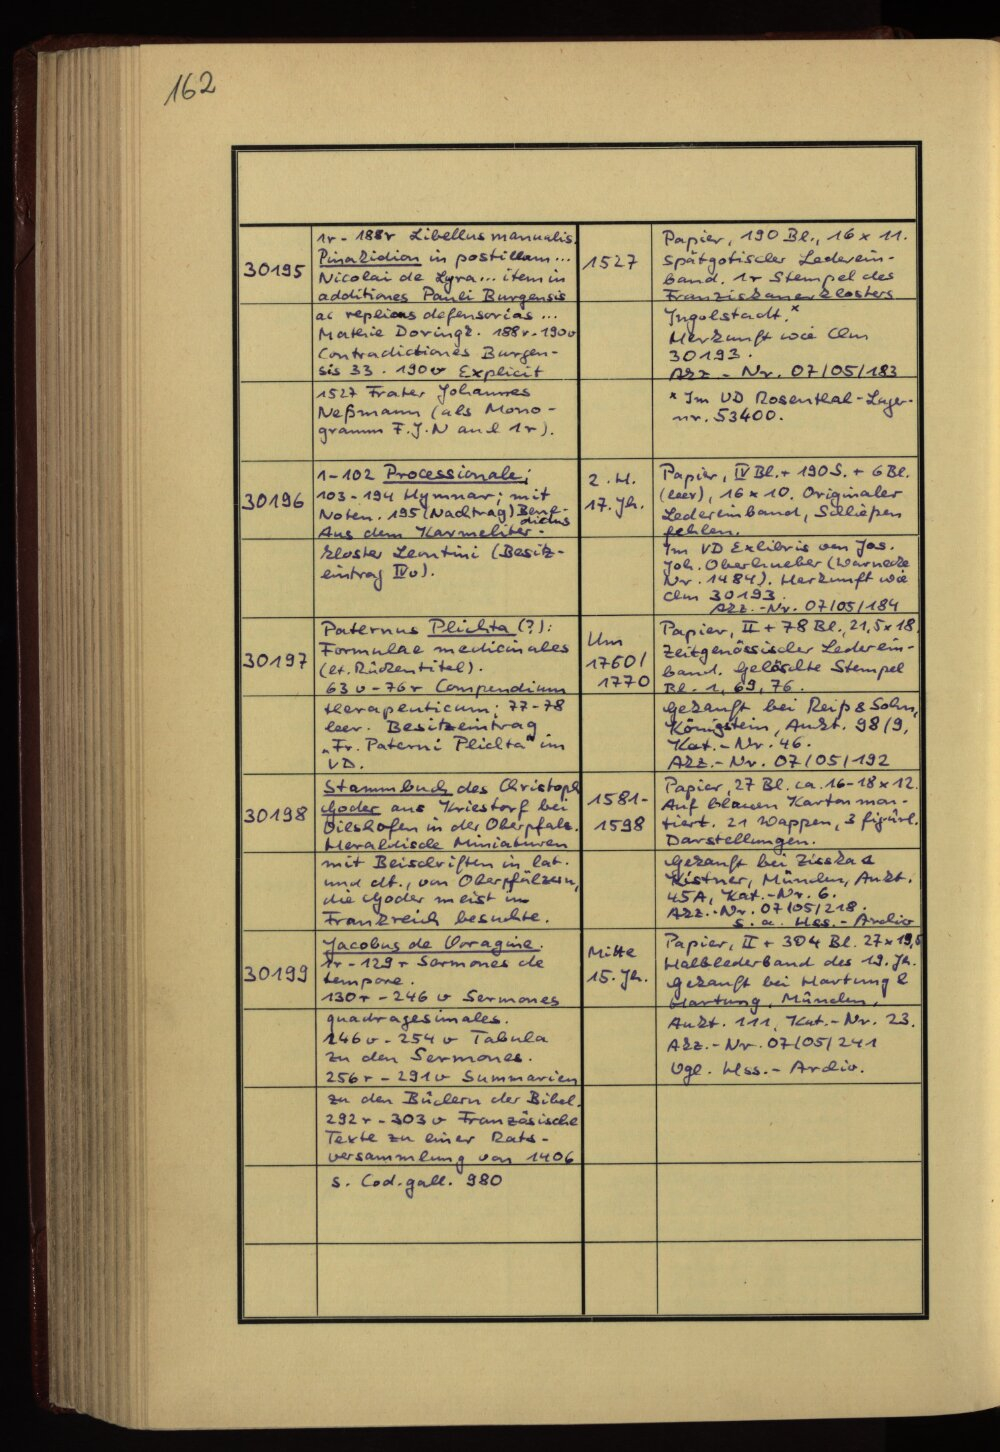 162
30195
1r - 188r Libellus manualis.
Pinakidion in postillam ...
Nicolai de Lyra ... item in
additiones Pauli Burgensis
ac replicas defensorias ...
Mathie Doringk. 188r-190v
Contradictiones Burgen-
sis 33. 190v Explicit
1527 Frater Johannes
Neßmann (als Mono-
gramm F.J.N auch 1r).
1527
Papier, 190 Bl., 16 x 11.
Spätgotischer Lederein-
band. 1r Stempel des
Franziskanerklosters
Ingolstadt.*
Herkunft wie Clm
30193.
Akz.-Nr. 07/05/183
* Im VD Rosenthal-Lager-
nr. 53400.
30196
1-102 Processionale;
103-194 Hymnar; mit
Noten. 195 (Nachtrag) Bene-
dictus
Aus dem Karmeliter-
kloster Leontini (Besitz-
eintrag IVv).
2. H.
17. Jh.
Papier, IV Bl. + 190 S. + 6 Bl.
(leer), 16 x 10. Originaler
Ledereinband, Schließen
fehlen.
Im VD Exlibris von Jos.
Joh. Oberhueber (Warnecke
Nr. 1484). Herkunft wie
Clm 30193.
Akz.-Nr. 07/05/184
30197
Paternus Plichta (?):
Formulae medicinales
(lt. Rückentitel).
63v-76r Compendium
therapeuticum; 77-78
leer. Besitzeintrag
„Fr. Paterni Plichta" im
VD.
Um
1760/
1770
Papier, II + 78 Bl., 21,5 x 18.
Zeitgenössischer Lederein-
band. Gelöschte Stempel
Bl. 1, 69, 76.
Gekauft bei Reiß & Sohn,
Königstein, Aukt. 98/9,
Kat.-Nr. 46.
Akz.-Nr. 07/05/192
30198
Stammbuch des Christoph
Goder aus Kriestorf bei
Vilshofen in der Oberpfalz.
Heraldische Miniaturen
mit Beischriften in lat.
und dt., von Oberpfälzern,
die Goder meist in
Frankreich besuchte.
1581-
1598
Papier, 27 Bl. ca. 16-18 x 12.
Auf blauen Karton mon-
tiert. 21 Wappen, 3 figürl.
Darstellungen.
Gekauft bei Zisska &
Kistner, München, Aukt.
45A, Kat.-Nr. 6.
Akz.-Nr. 07/05/218.
s. a. Hss.-Archiv
30199
Jacobus de Voragine.
1r-129r Sermones de
tempore.
130r-246v Sermones
quadragesimales.
246v-254v Tabula
zu den Sermones.
256r-291v Summarien
zu den Büchern der Bibel.
292r-303v Französische
Texte zu einer Rats-
versammlung von 1406
s. Cod. gall. 980
Mitte
15. Jh.
Papier, II + 304 Bl. 27 x 19,5
Halblederband des 19. Jh.
Gekauft bei Hartung &
Hartung, München,
Aukt. 111, Kat.-Nr. 23.
Akz.-Nr. 07/05/241
Vgl. Hss.-Archiv.